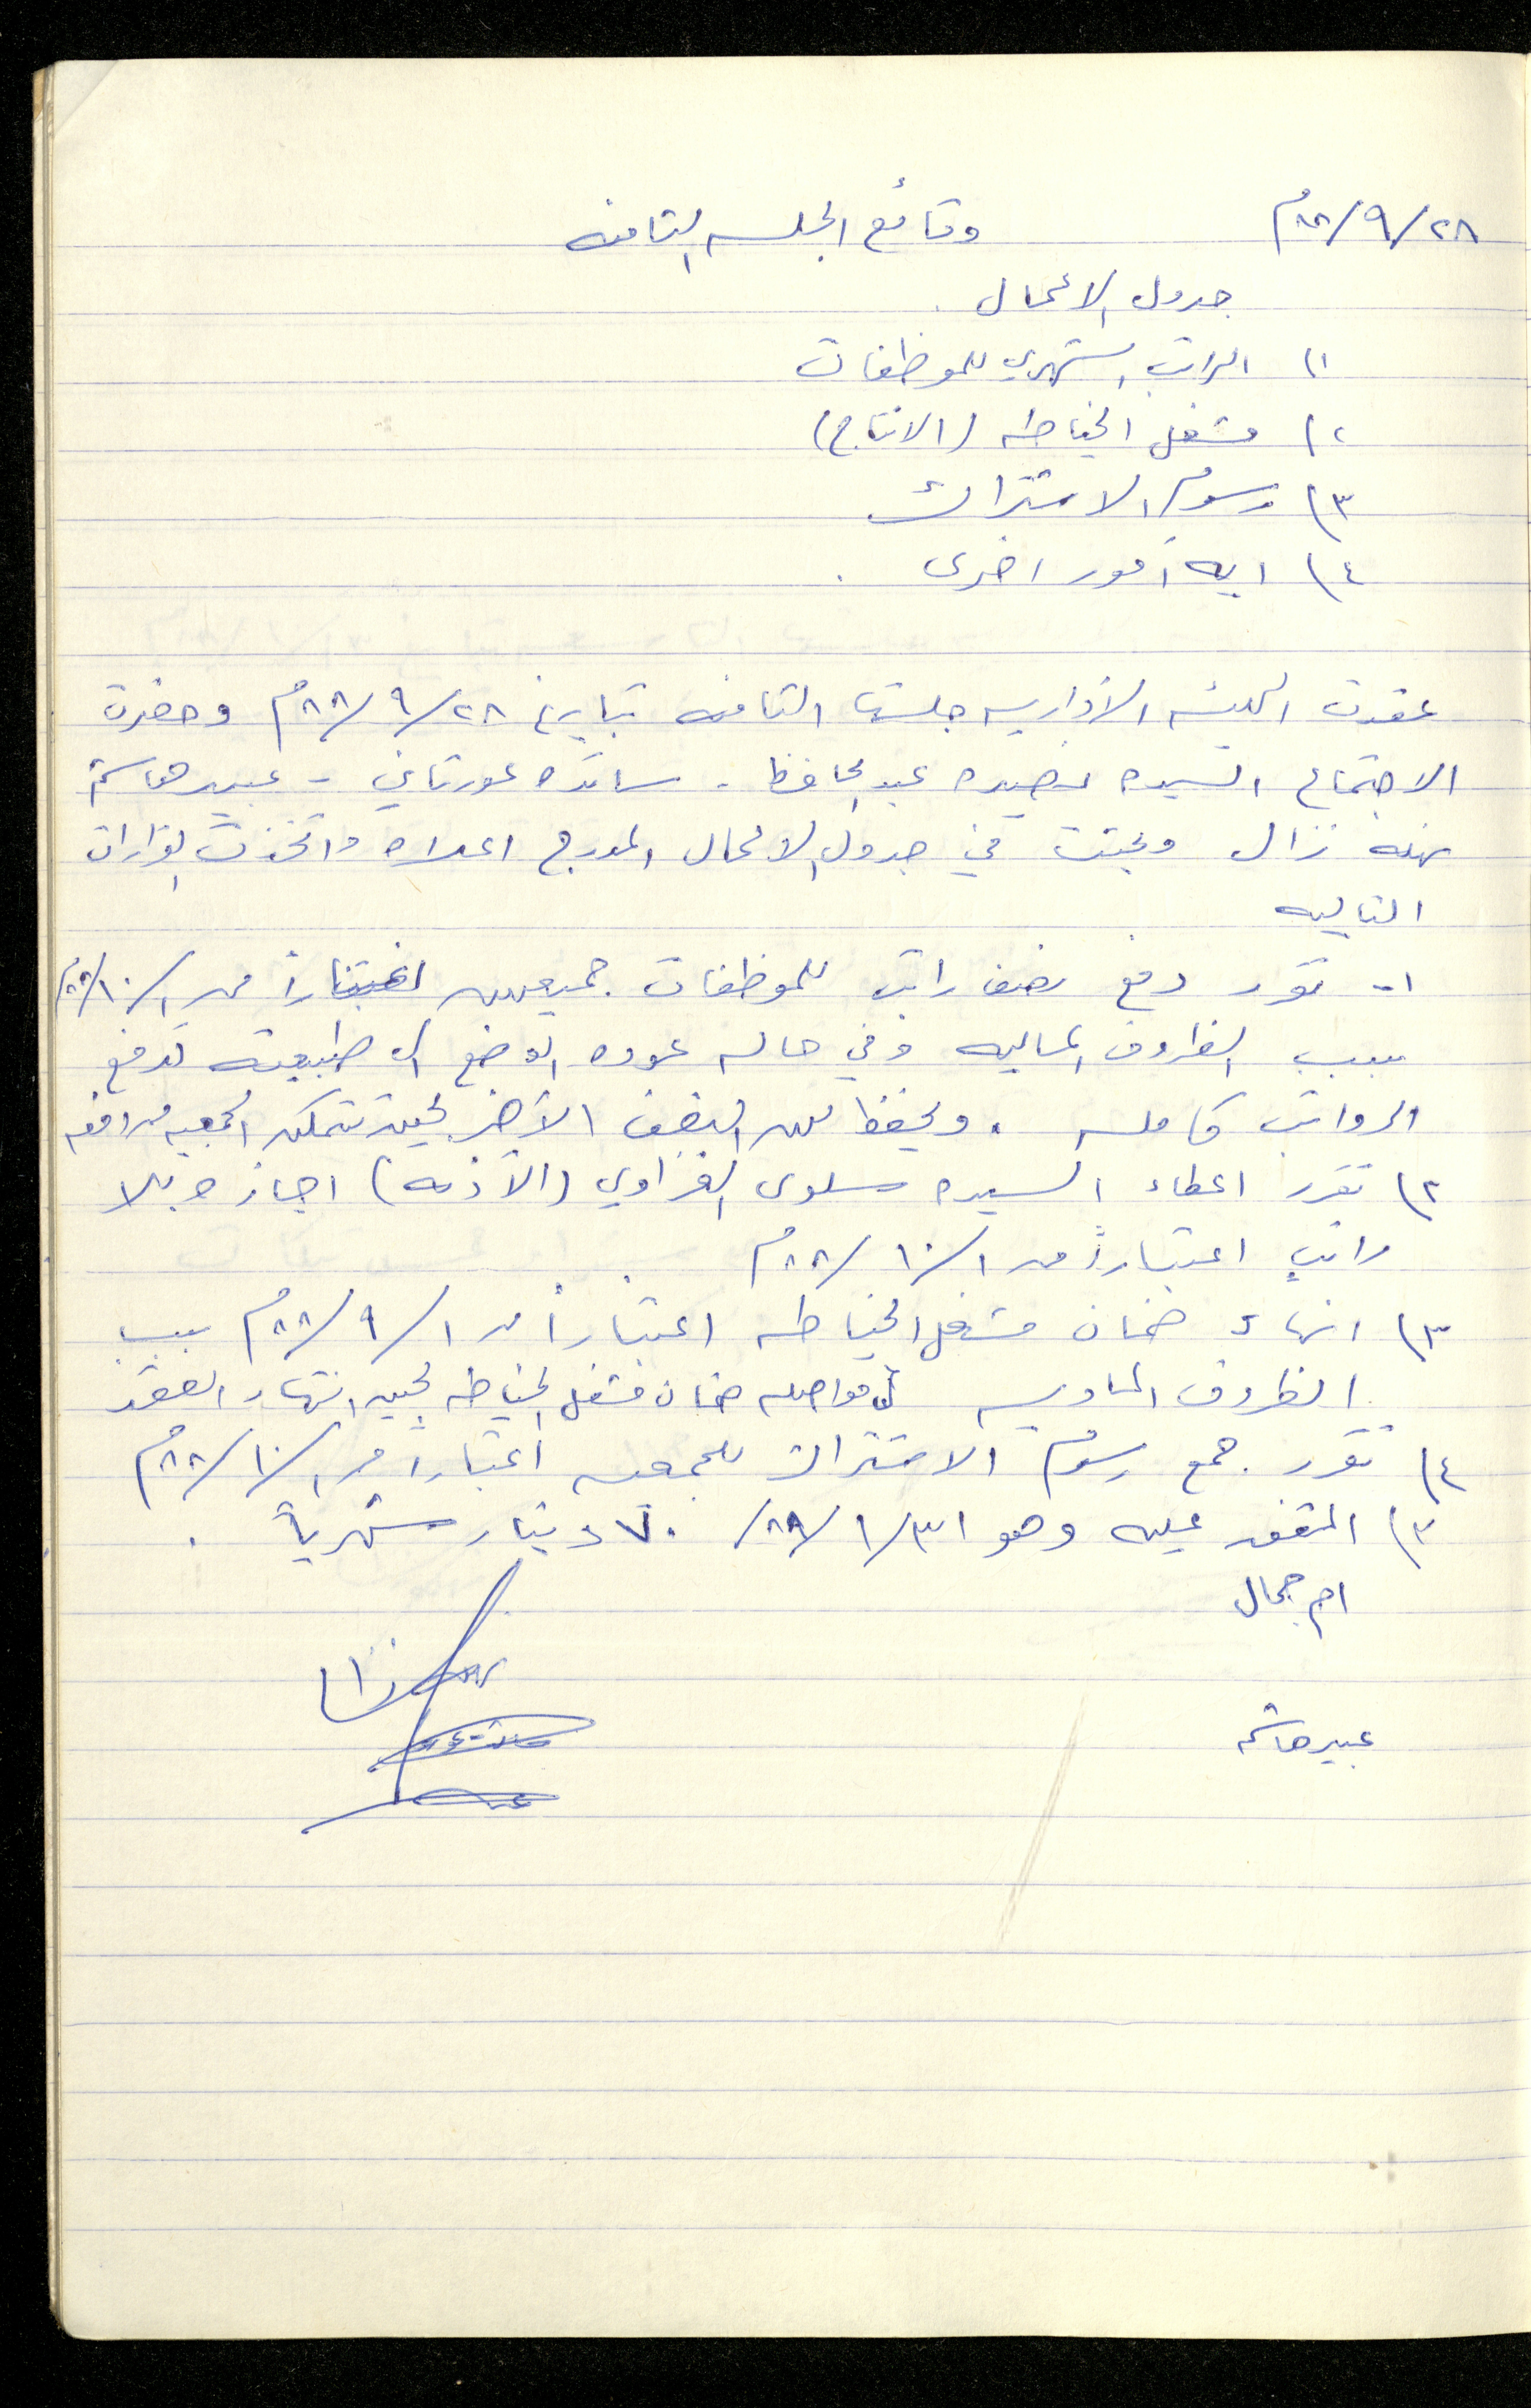 ٨٨/٩/٢٨م وقائع الجلسه الثامنه
جدول الاعمال .
١) الراتب الشهري للموظفات
٢) مشغل الخياطه (الانتاج)
٣) رسوم الاشتراك
٤) ايه أمور اخرى .
عقدت الهيئه الاداريه جلستها الثامنه بتاريخ ٨٨/٩/٢٨م وحضرت
الاجتماع السيده نصيره عبد الحافظ - سائده عورتاني - عبير هاشم
نهله نزال وبحثت في جدول الاعمال المدرج اعلاه واتخذت القرارات
التاليه
١- تقرر دفع نصف راتب للموظفات جميعهن اعتباراً من ٨٨/١٠/١م
بسبب الظروف الماليه وفي حاله عوده الوضع الى طبيعته تدفع
الرواتب كامله . ويحفظ لهن النصف الآخر لحين تتمكن الجمعيه من دفعه
٢) تقرر اعطاء السيده سلوى الغزاوي (الآذنه) اجازه بلا
راتب اعتباراً من ٨٨/١٠/١م
٣) انهاء ضمان مشغل الخياطه اعتباراً من ٨٨/٩/١م بسبب
الظروف الماديه مواصله ضمان مشغل الخياطه لحين انتهاء العقد
٤) تقرر جمع رسوم الاشتراك للجمعيه اعتباراً من ٨٨/١٠/١م
٣) المتفق عليه وهو ٨٩/١/٣١ ٧٠ دينار شهرياً .
ام جمال
عبير هاشم